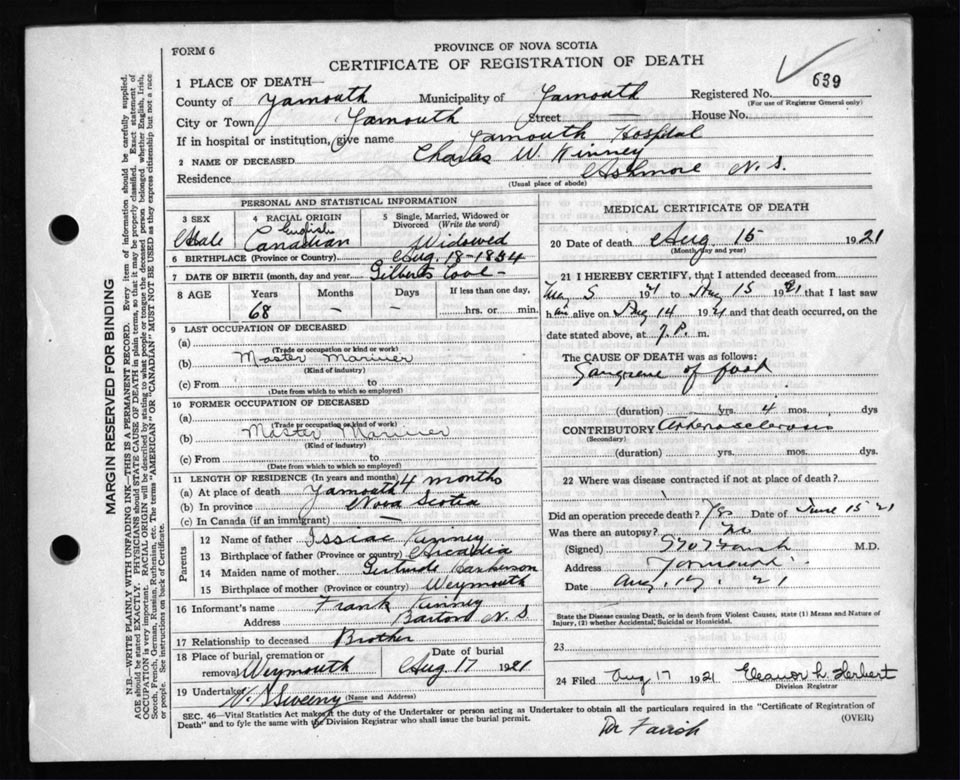 FORM 6
PROVINCE OF NOVA SCOTIA
CERTIFICATE OF REGISTRATION OF DEATH
639
1 PLACE OF DEATH—
County of Yarmouth Municipality of Yarmouth Registered No.
(For use of Registrar General only)
City or Town Yarmouth Street — House No.
If in hospital or institution, give name Yarmouth Hospital
2 NAME OF DECEASED Charles W. Kinney
Residence Ashmore N. S.
(Usual place of abode)
PERSONAL AND STATISTICAL INFORMATION
3 SEX Male
4 RACIAL ORIGIN English Canadian
5 Single, Married, Widowed or Divorced (Write the word) Widowed
6 BIRTHPLACE (Province or Country) Aug. 18-1854
7 DATE OF BIRTH (month, day and year) Gilberts Cove -
8 AGE Years Months Days If less than one day,
68 - - hrs. or min.
9 LAST OCCUPATION OF DECEASED
(a)
(Trade or occupation or kind or work)
(b) Master Mariner
(Kind of industry)
(c) From to
(Date from which to which so employed)
10 FORMER OCCUPATION OF DECEASED
(a)
(Trade or occupation or kind of work)
(b) Master Mariner
(Kind of industry)
(c) From to
(Date from which to which so employed)
11 LENGTH OF RESIDENCE (In years and months)
(a) At place of death Yarmouth 4 months
(b) In province Nova Scotia
(c) In Canada (if an immigrant) —
Parents
12 Name of father Issiac Kinney
13 Birthplace of father (Province or country) Arcadia
14 Maiden name of mother Gertrude
15 Birthplace of mother (Province or country) Weymouth
16 Informant's name Frank Kinney
Address Barton N. S
17 Relationship to deceased Brother
18 Place of burial, cremation or removal Weymouth
Date of burial Aug 17 1921
19 Undertaker V. S Sweeny
(Name and Address)
MEDICAL CERTIFICATE OF DEATH
20 Date of death Aug. 15 1921
(Month, day and year)
21 I HEREBY CERTIFY, that I attended deceased from
May 5 1921 to Aug 15 1921 that I last saw
him alive on Aug 14 1921 and that death occurred, on
date stated above, at 7. P. m.
The CAUSE OF DEATH was as follows:
Gangrene of foot
(duration) yrs. 4 mos. dys
CONTRIBUTORY Arteriosclerosis
(Secondary)
(duration) yrs. mos. dys.
22 Where was disease contracted if not at place of death?
Did an operation precede death? Yes Date of June 15 '21
Was there an autopsy? No
(Signed) Farish M.D.
Address Yarmouth
Date Aug. 17. 21
State the Disease causing Death, or in death from Violent Causes, state (1) Means and Nature of Injury, (2) whether Accidental, Suicidal or Homicidal.
23
24 Filed Aug 17 1921 Eleanor L. Herbert
Division Registrar
SEC. 46—Vital Statistics Act makes it the duty of the Undertaker or person acting as Undertaker to obtain all the particulars required in the "Certificate of Registration of
Death" and to fyle the same with the Division Registrar who shall issue the burial permit.
(OVER)
Dr Farish
MARGIN RESERVED FOR BINDING
N.B.—WRITE PLAINLY WITH UNFADING INK—THIS IS A PERMANENT RECORD. Every item of information should be carefully supplied.
AGE should be stated EXACTLY. PHYSICIANS should STATE CAUSE OF DEATH in plain terms, so that it may be properly classified. Exact statement of
OCCUPATION is very important. RACIAL ORIGIN will be described by stating to what people or tongue the deceased person belonged whether English, Irish,
Scotch, French, German, Russian, Ruthenian, etc. The terms "AMERICAN" or "CANADIAN" MUST NOT BE USED as they express citizenship but not a race
or people. See instructions on back of Certificate.